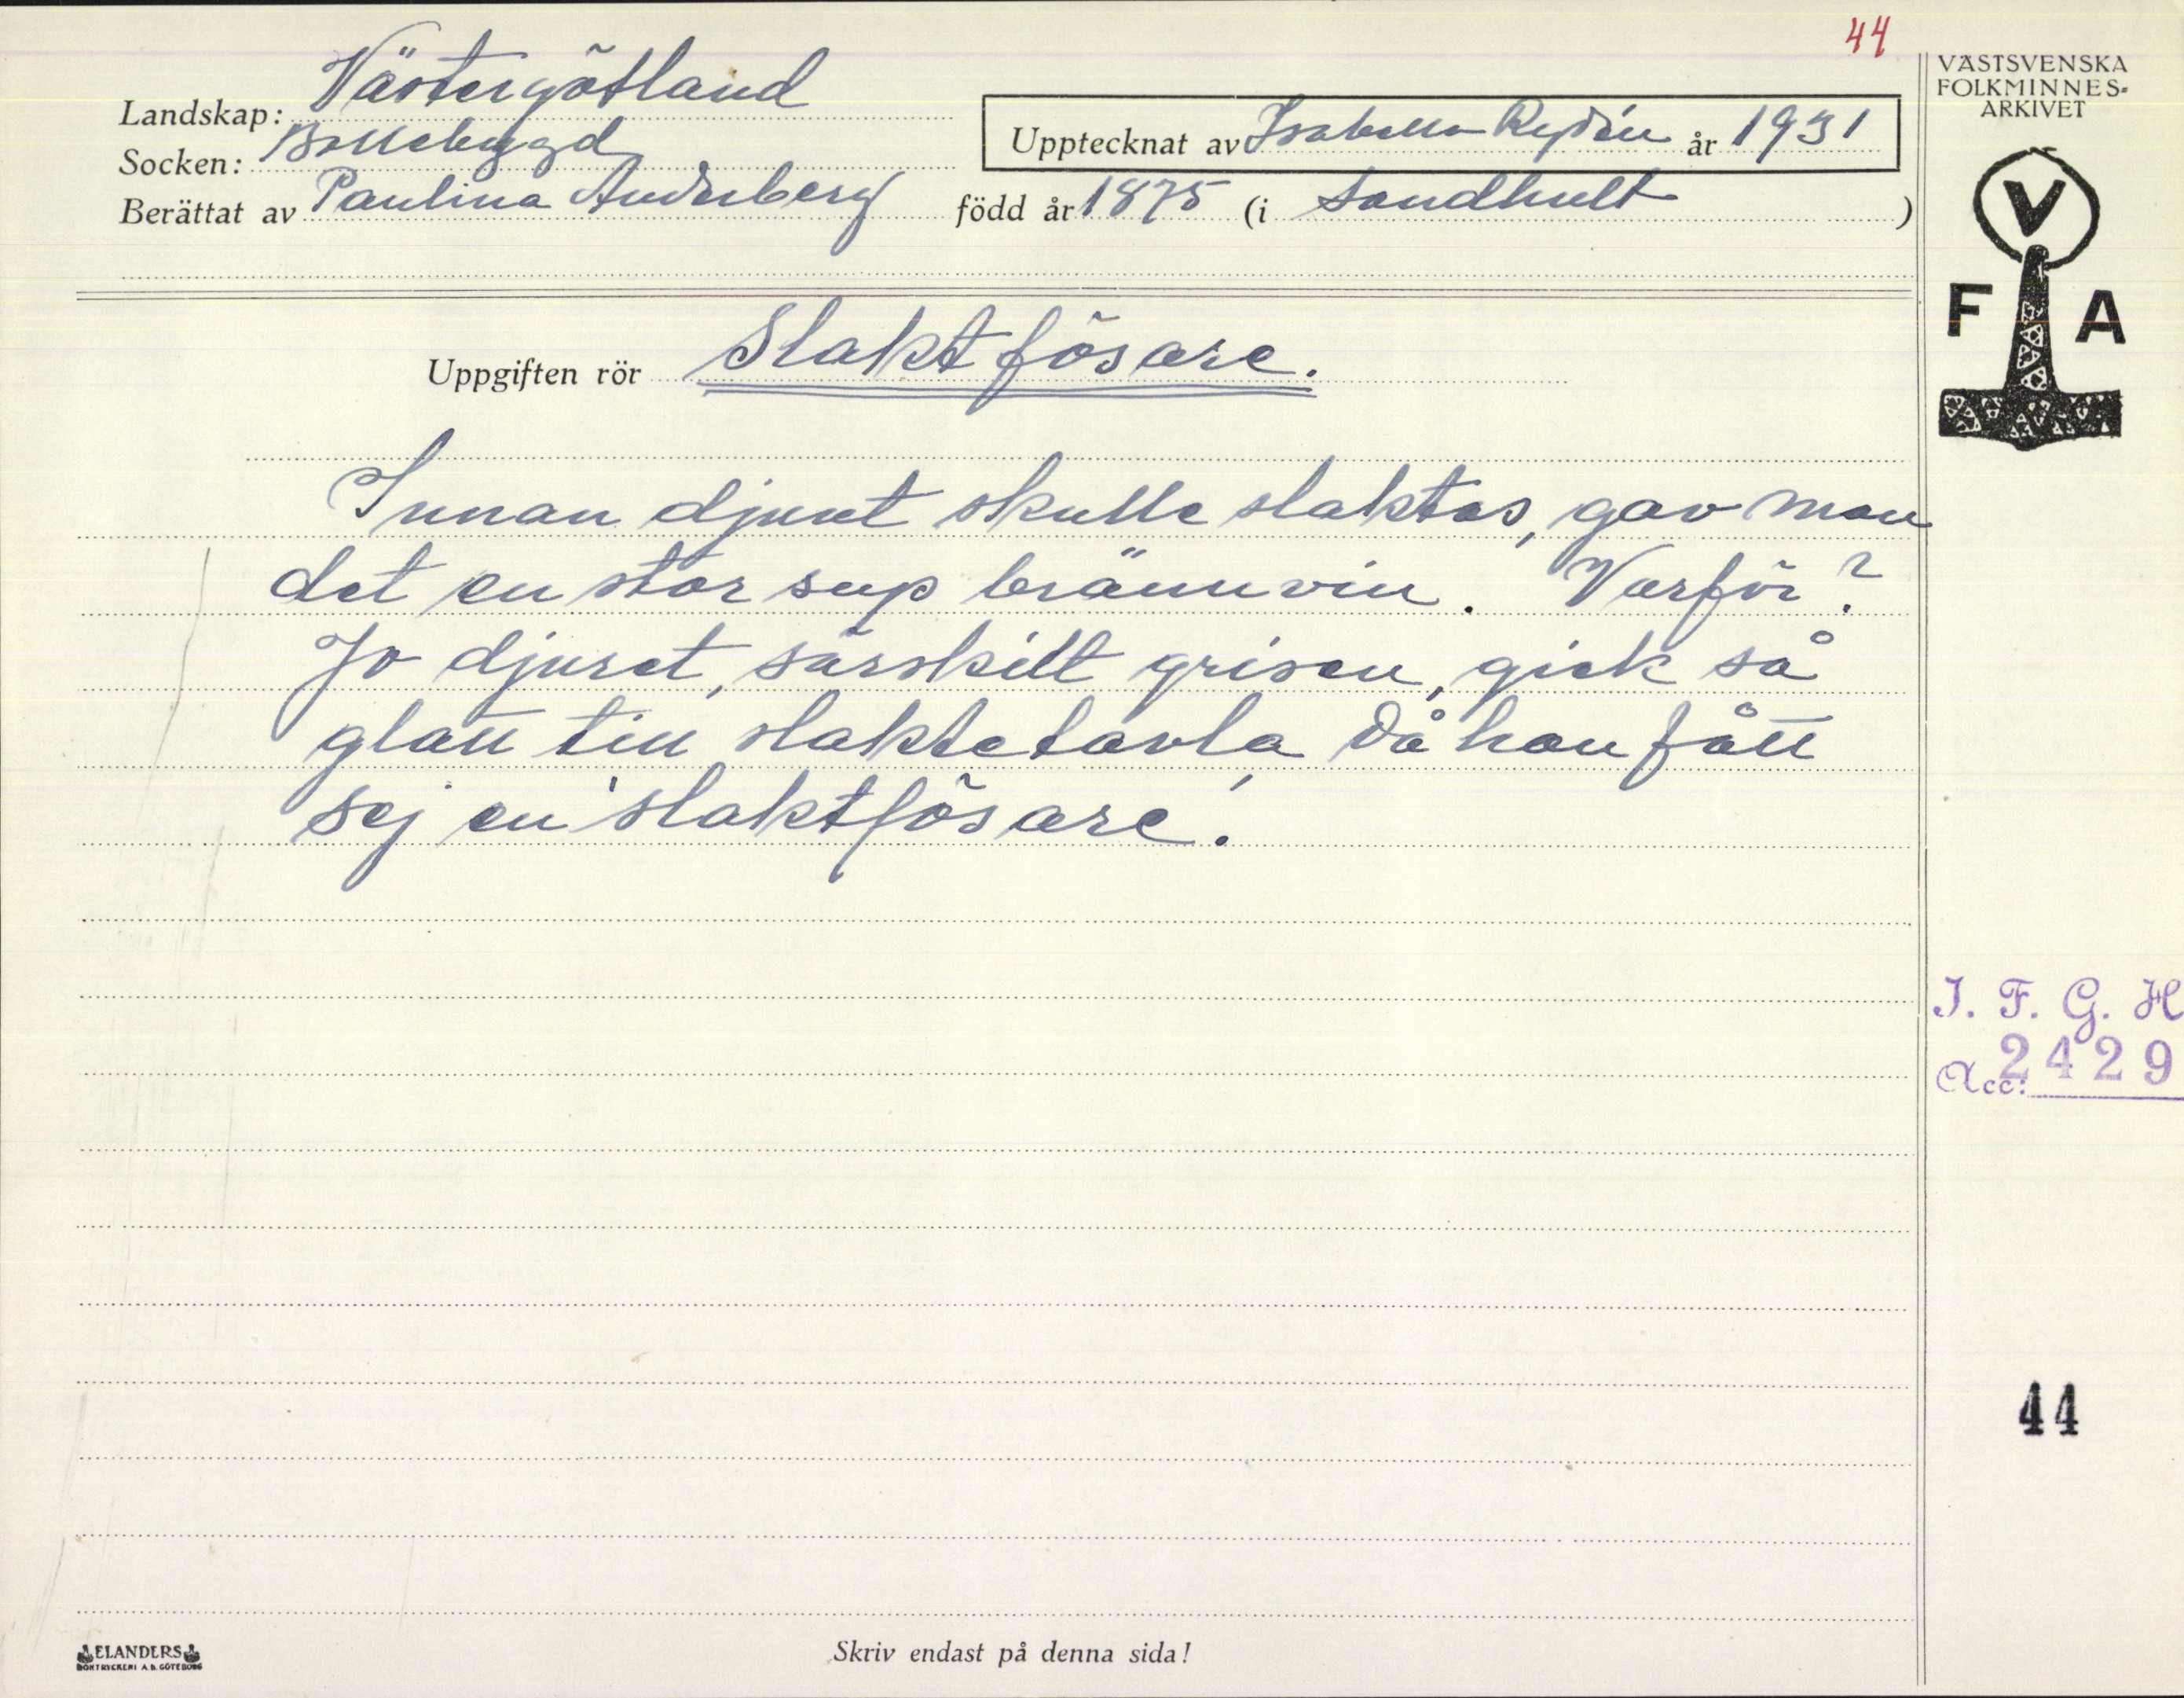 44
VÄSTSVENSKA
FOLKMINNES-
ARKIVET
Landskap: Västergötland
Socken: Bollebygd
Upptecknat av Isabella Rydén år 1931
Berättat av Paulina Anderberg född år 1875 (i Sandhult)
V
F A
Uppgiften rör Slaktfösare.
Innan djuret skulle slaktas, gav man
det en stor sup brännvin. Varför?
Jo djuret, särskilt grisen, gick så
glatt till slaktetavla, då han fått
sej en 'slaktfösare'.
I. F. G. H
Acc: 2429
44
ELANDERS
BOKTRYCKERI A.B. GÖTEBORG
Skriv endast på denna sida!